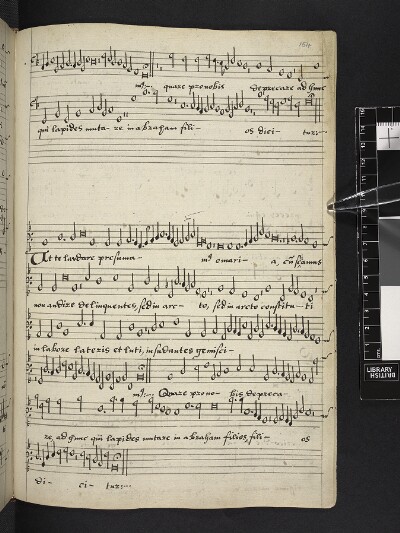 164
mꝰ: quare pro nobis deprecare ad hunc
qui lapides muta- re in abraham fili- os dici- tur:
Ut te laudare presuma- mꝰ o mari- a, cū
non audire delinquentes, sed in arc- to, sed in arcto constitu- ti
in labore lateris et luti, insudantes gemisci-
mꝰ: Quare pro no- bis depreca-
re, ad hunc qui lapides mutare in abraham filios, fili- os
di- ci- tur:
LIBRARY
BRITISH